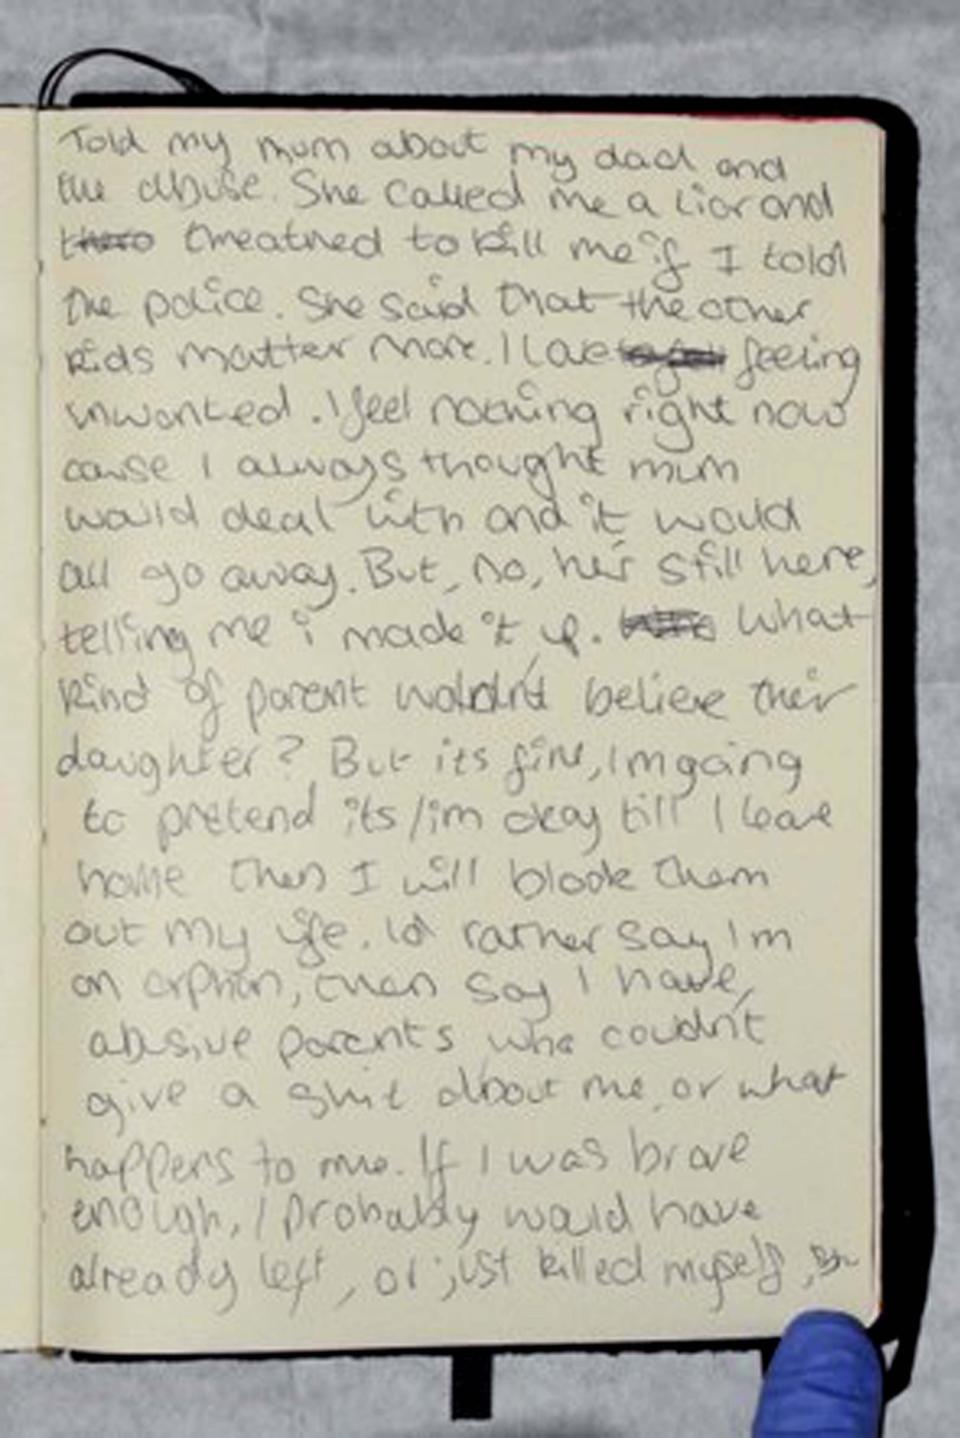 Told my mum about my dad and
the abuse. She called me a liar and
threatned to kill me if I told
the police. She said that the other
kids matter more. I love feeling
unwanted. I feel nothing right now
cause I always thought mum
would deal with and it would
all go away. But, no, he's still here,
telling me i made it up. What
kind of parent wouldn't believe their
daughter? But its fine, Im going
to pretend its/im okay till I leave
home then I will blook them
out my life. Id rather say Im
an orphan, then say I have,
abusive parents who couldn't
give a shit about me, or what
happens to me. If I was brave
enough, I probably would have
already left, or just killed myself,